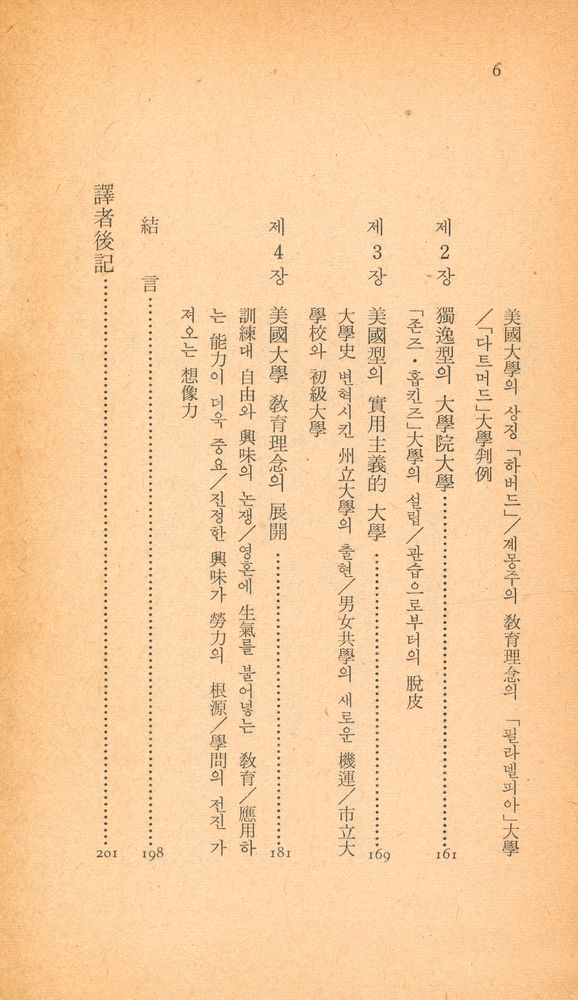 6
美國大學의 상징「하버드」／계몽주의 敎育理念의 「필라델피아」大學
／「다트머드」大學判例
제2장 獨逸型의 大學院大學……………………161
「존즈·홉킨즈」大學의 설립／관습으로부터의 脫皮
제3장 美國型의 實用主義的 大學……………………169
大學史 변혁시킨 州立大學의 출현／男女共學의 새로운 機運／市立大
學校와 初級大學
제4장 美國大學 敎育理念의 展開……………………181
訓練대 自由와 興味의 논쟁／영혼에 生氣를 불어넣는 敎育／應用하
는 能力이 더욱 중요／진정한 興味가 勞力의 根源／學問의 전진 가
져오는 想像力
結 言……………………198
譯者後記……………………201